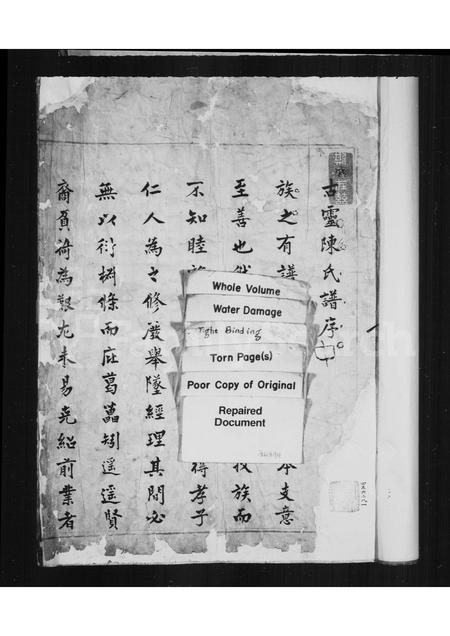 古靈陳氏譜序
族之有譜
本支意
至善也
族而
不知睦
得孝子
仁人為之修廢舉墜經理其間必
無以衍楙條而庇葛藟矧遥遥賢
裔負荷為艱尤未易堯紹前業者
Whole Volume
Water Damage
Tight Binding
Torn Page(s)
Poor Copy of Original
Repaired
Document